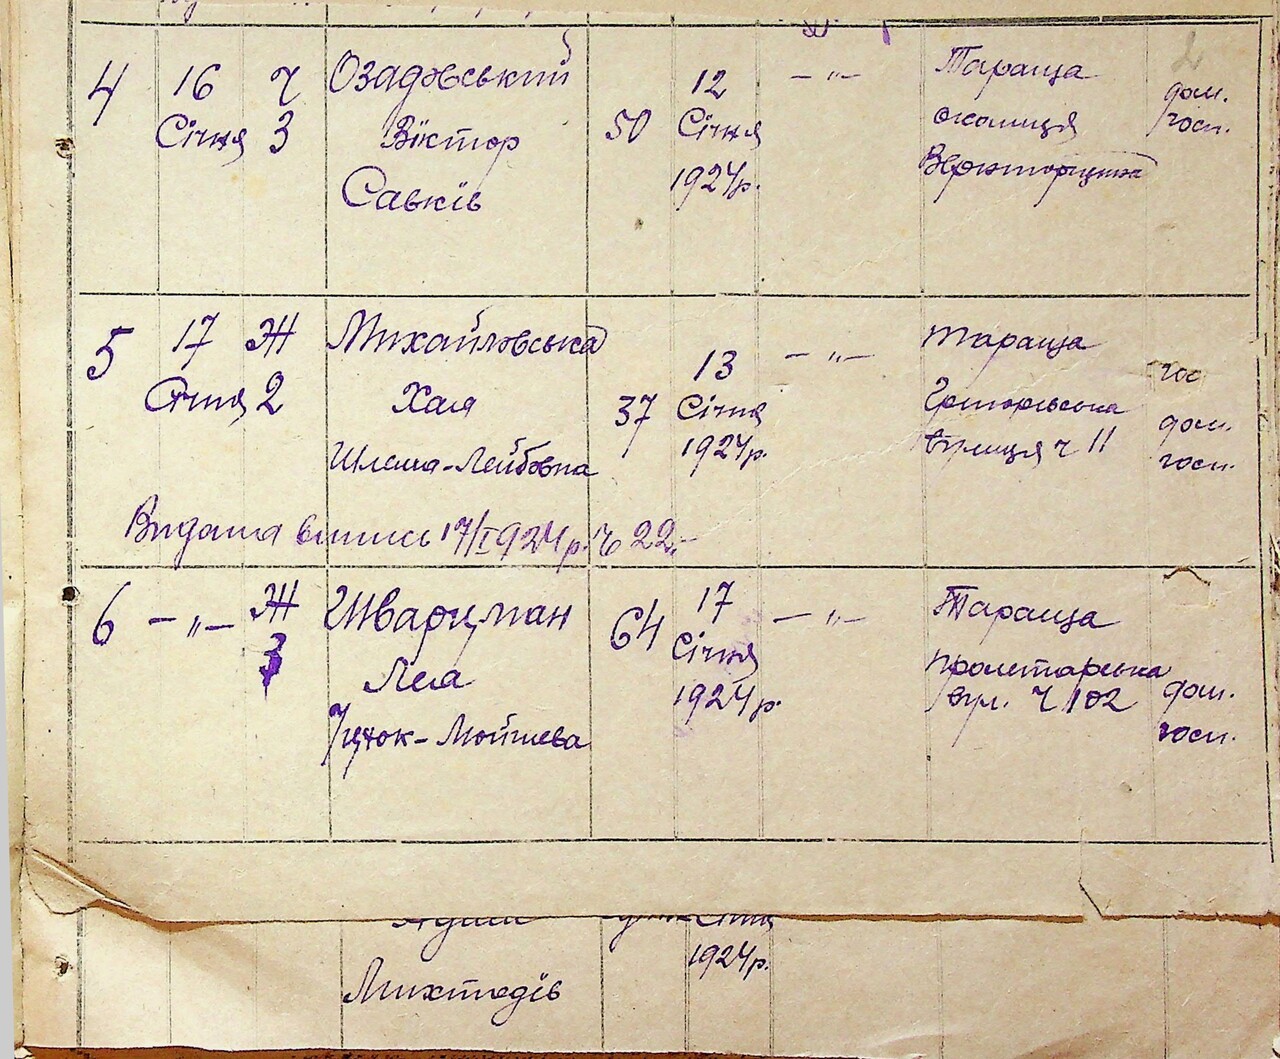 4 16 Січня Ч 3 Озадовський 50 12 Січня 1924р. — „ — Тараща дом.
Віктор околиця госп.
Савків
5 17 Січня Ж 2 Михайловська 37 13 Січня 1924р. — „ — Тараща гос
Хая дом.
Шлема-Лейбовна вулиця ч 11 госп.
Видана випись 17/I 1924р. Ч 22.-
6 — „ — Ж 3 Шварцман 64 17 Січня 1924р. — „ — Тараща
Лея Пролетарська дом.
Іцхок-Мойшева вул. Ч 102 госп.
Січня
1924р.